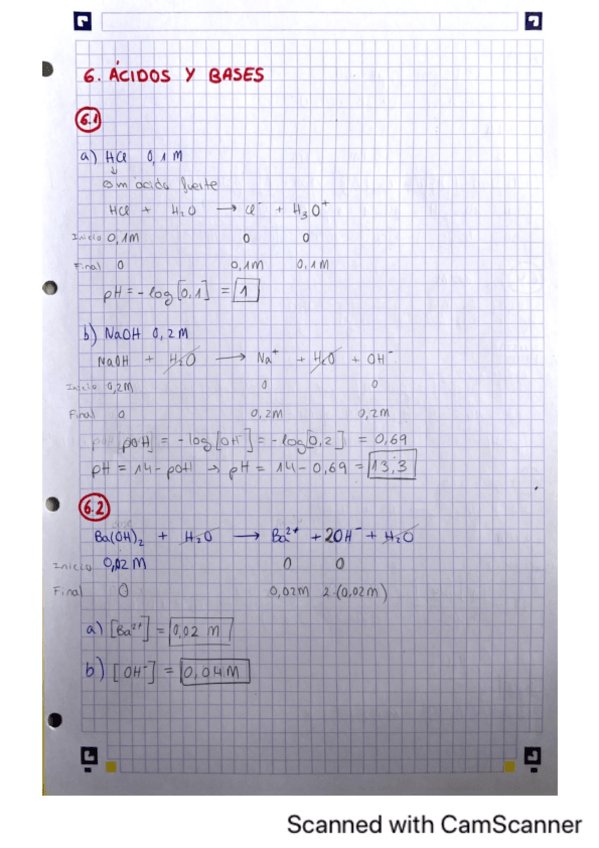 6. ÁCIDOS Y BASES
6.1
a) HCl 0,1 M
↓
Es un ácido fuerte
HCl + H₂O → Cl⁻ + H₃O⁺
Inicio 0,1M 0 0
Final 0 0,1M 0,1M
pH = -log[0,1] = 1
b) NaOH 0,2M
NaOH + H₂O → Na⁺ + H₂O + OH⁻
Inicio 0,2M 0 0
Final 0 0,2M 0,2M
[pOH] = -log[OH⁻] = -log[0,2] = 0,69
pH = 14-pOH → pH = 14-0,69 = 13,3
6.2
Ba(OH)₂ + H₂O → Ba²⁺ + 2OH⁻ + H₂O
Inicio 0,02 M 0 0
Final 0 0,02M 2·(0,02M)
a) [Ba²⁺] = 0,02 M
b) [OH⁻] = 0,04M
Scanned with CamScanner